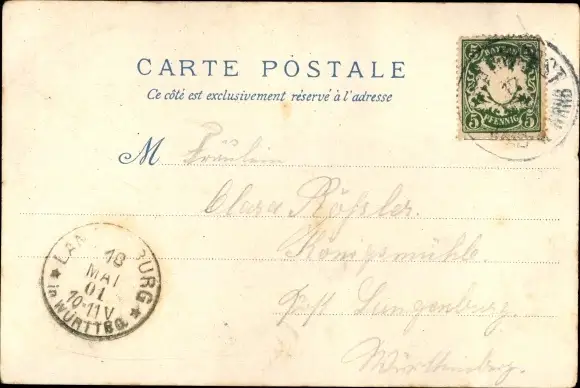 CARTE POSTALE
Ce côté est exclusivement réservé à l'adresse
BAYERN
5 PFENNIG 5
M Fräulein
Clara Rößler.
Königsmühle.
Post Langenburg.
Württemberg.
18
MAI
01
10-11 V
in WÜRTTBG